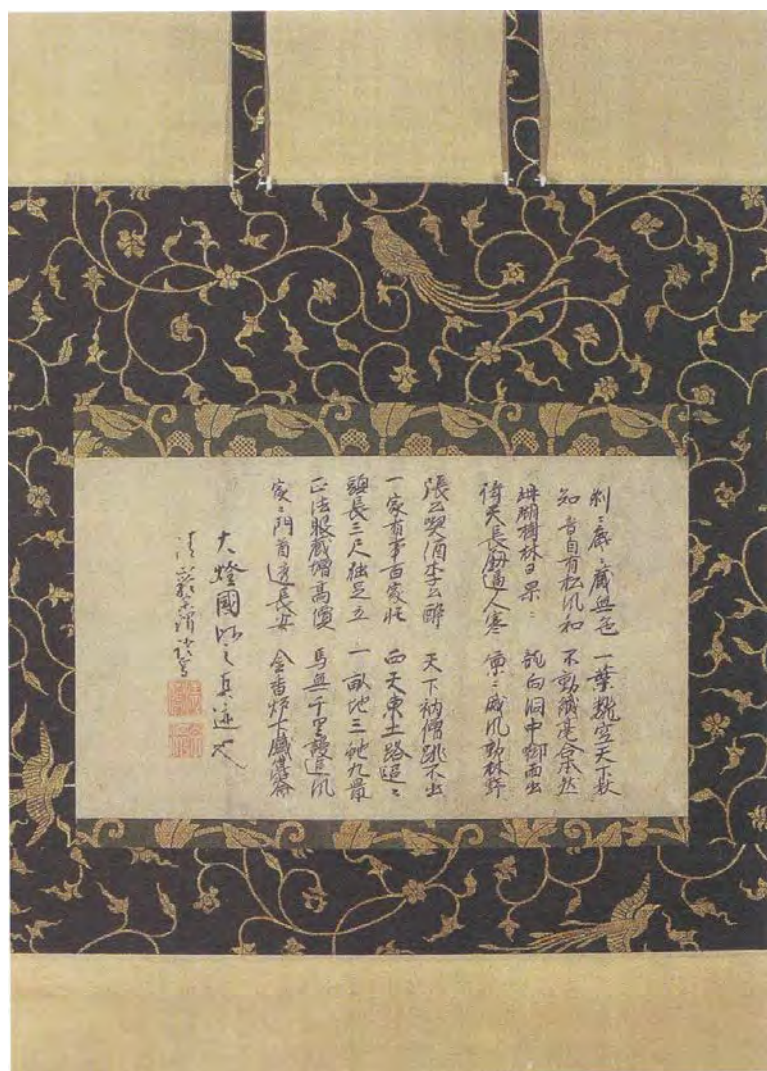 刹〻無色　一葉飜空天下秋
知音自有松風和　不動纖毫合本然
珊瑚樹林日杲〻　龍向洞中啣雨出
倚天長劒逼人寒　凛〻威風動林野
張公喫酒李公醉　天下衲僧跳不出
一家有事百家忙　西天東土路迢〻
頭長三尺独足立　一畝地三蛇九鼠
正法眼藏增高價　馬無千里謾追風
家〻門首透長安　金香炉下鐵崑崙
大燈國師之真迹也
清巖宗渭